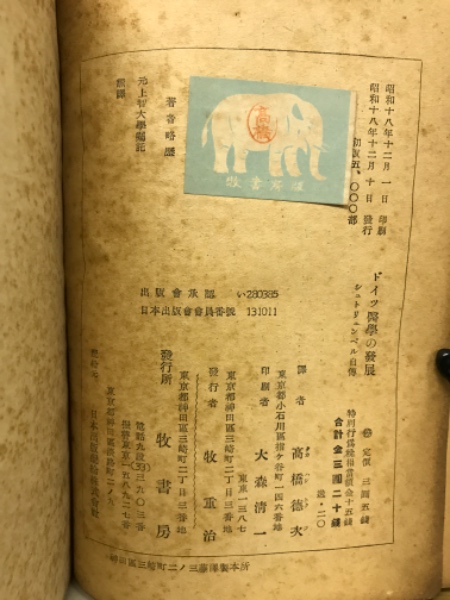 昭和十八年十二月一日 印刷
昭和十八年十二月十日 發行
初版五、〇〇〇部
高橋
牧書房
著者略歴
元上智大學囑託
ドイツ醫學の發展
シュトリュンペル自傳
出版會承認 い280385
日本出版會會員番號 131011
定價 三圓五錢
特別行爲税相當額金十五錢
合計金三圓二十錢
譯者 高橋徳次
東京都小石川區指ケ谷町一四六番地
印刷者 大森清一
東京一三八七
東京都神田區三崎町二丁目三番地
發行者 牧重治
東京都神田區三崎町二丁目三番地
發行所 牧書房
電話九段(33)三九〇三番
振替東京一五八九二七番
東京都神田區淡路町二ノ九
日本出版配給株式會社